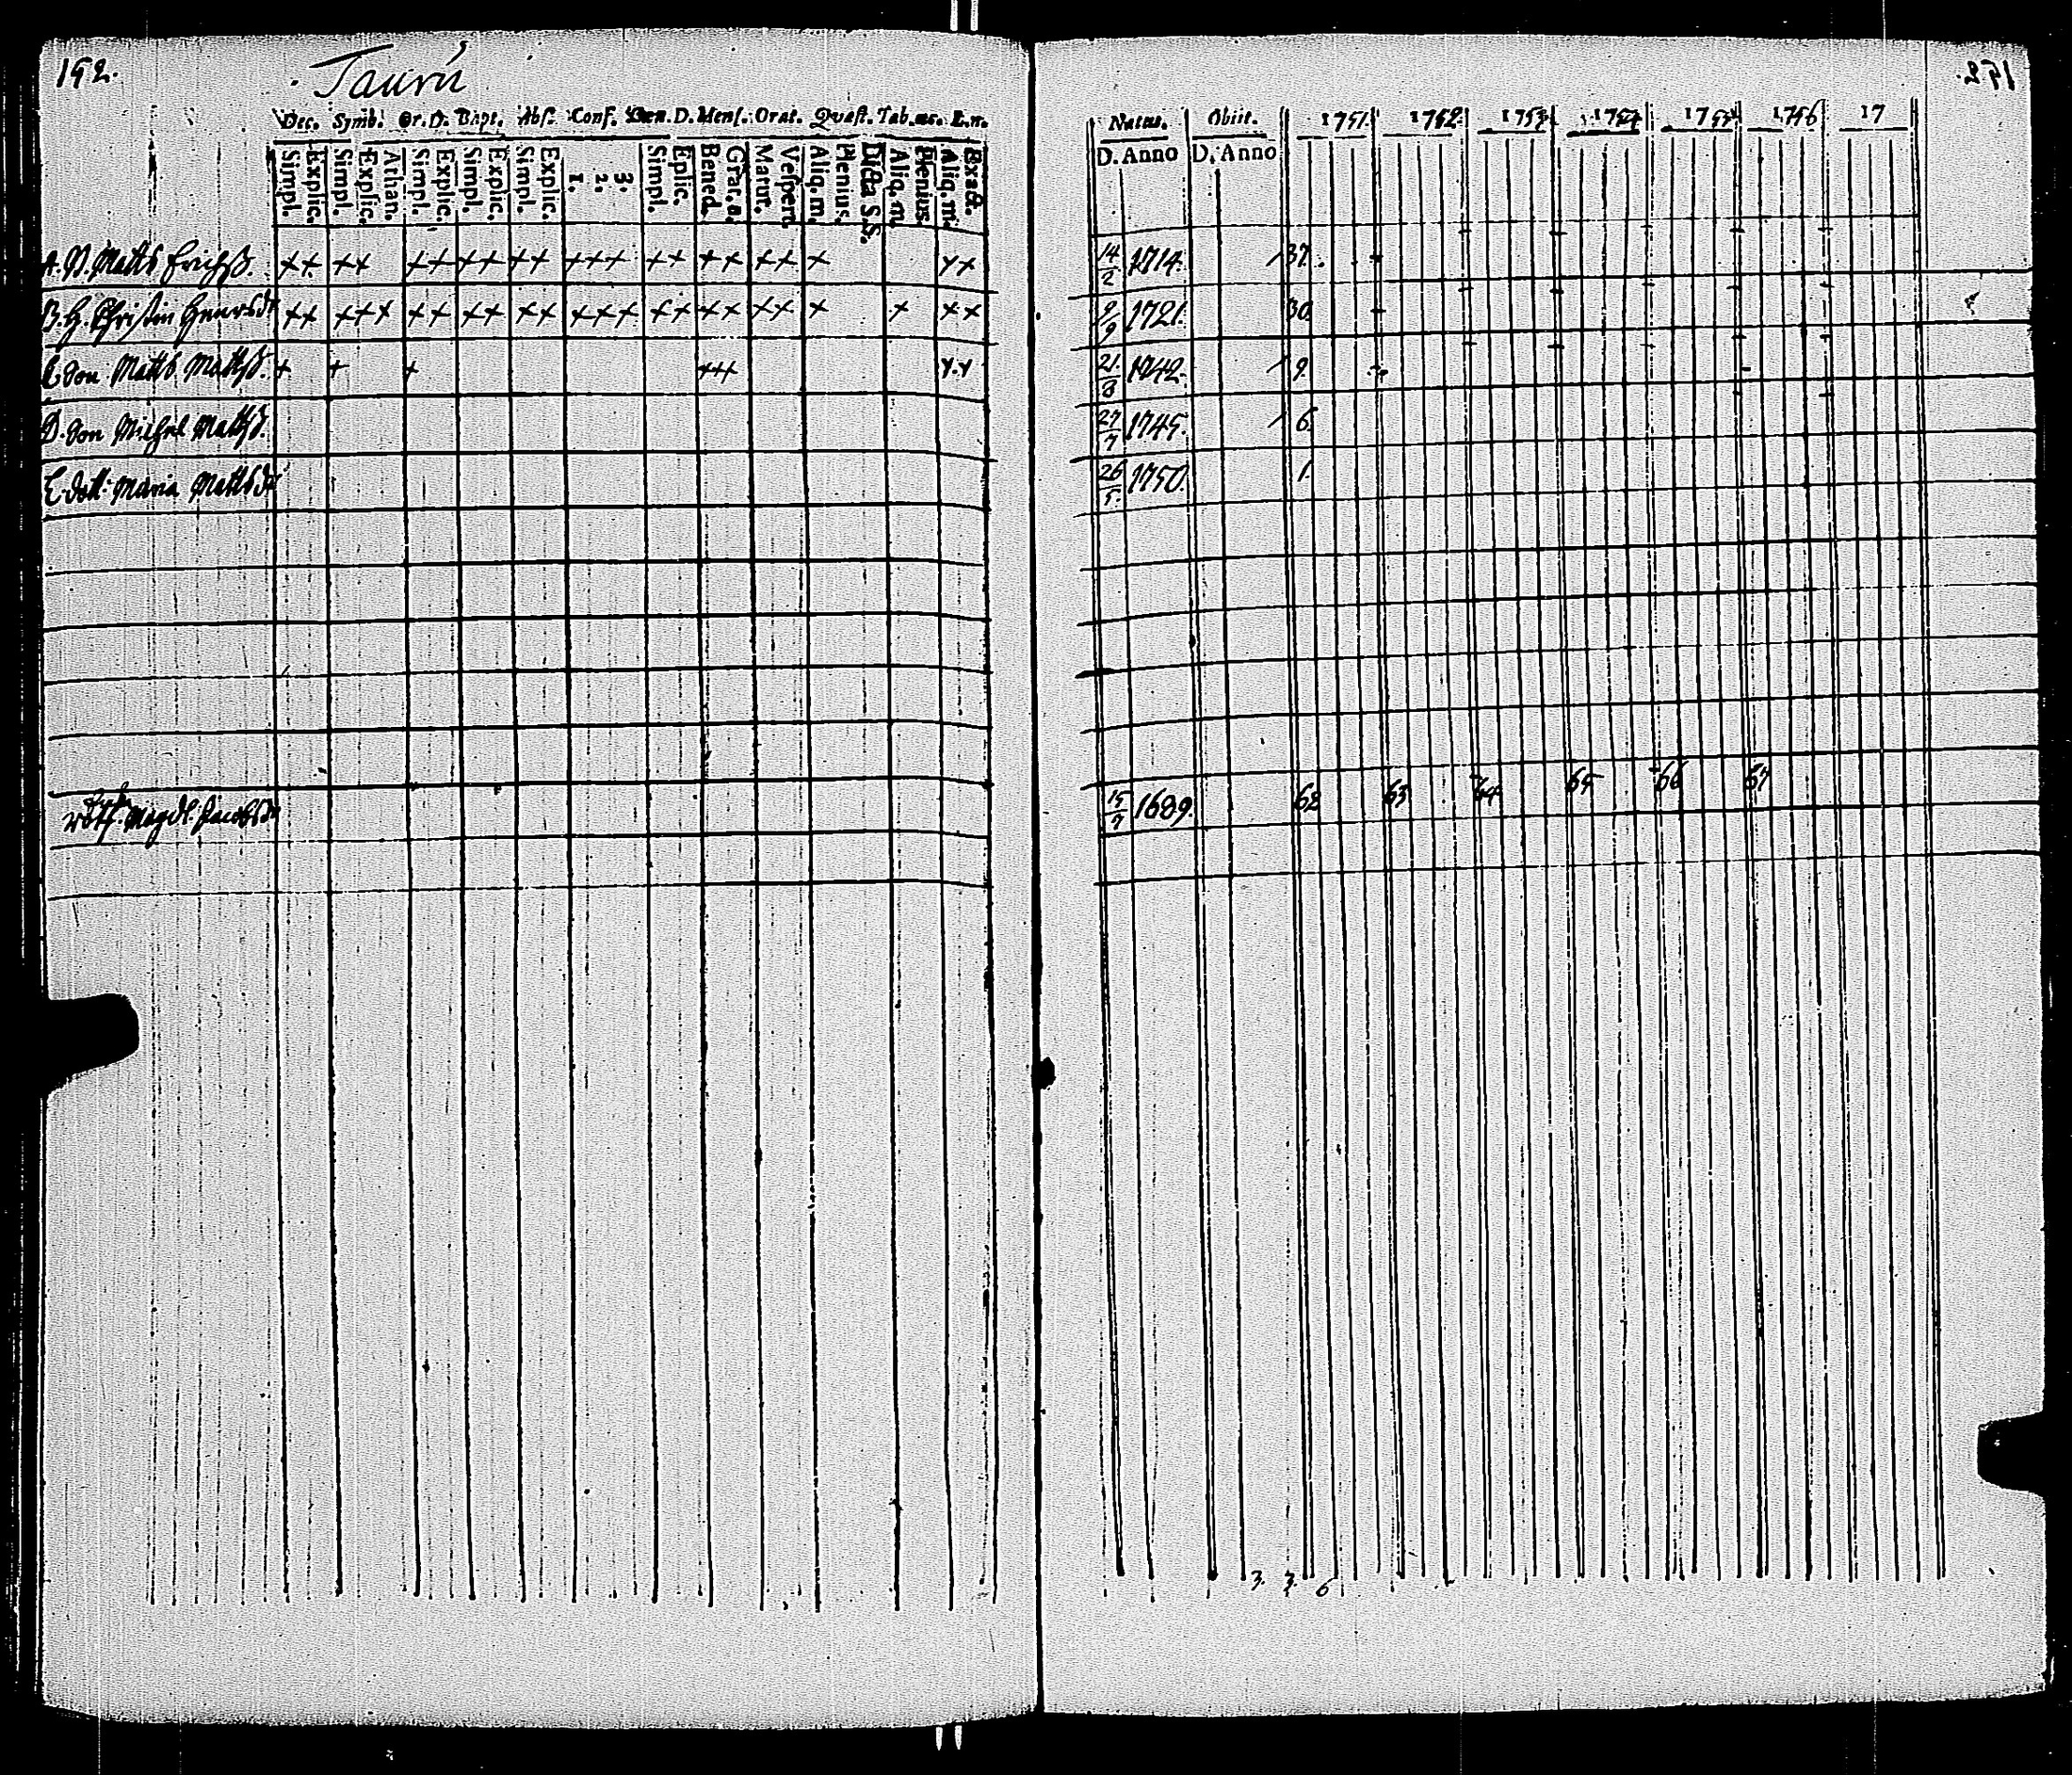 192.
Taurů
Dec. Symb. Or. D. Bapt. Abs. Conf. Cœn. D. Mens. Orat. Quæst. Tab. œc. L. n.
Simpl. Explic. Simpl. Explic. Athan. Simpl. Explic. Simpl. Explic. Simpl. Explic. 1. 2. 3. Simpl. Eplic. Bened. Grat. a. Matut. Vespert. Aliq. m. Plenius. Dicta S.S. Aliq. m. Plenius. Aliq. m. Exact.
A. D. Matts Erichss. ++ ++ ++ ++ ++ +++ ++ ++ ++ + ++
B. H. Christin Henrsdr ++ +++ ++ ++ ++ +++ ++ ++ ++ + + ++
C. Son Matts Mattss. + + + +++ ++
D. Son Michel Mattss.
E. dott. Maria Mattsdr
Magdl. Jacobsdr
192.
Natus. Obiit. 1751. 1752. 1753. 1754 1755 1756 17
D. Anno D. Anno
14/2 1714. 37.
9 1721. 30.
21/8 1742. 9.
27/7 1745. 6.
26/5 1750. 1.
15/7 1689. 62 63 64 65 66 67
3. 3. 6